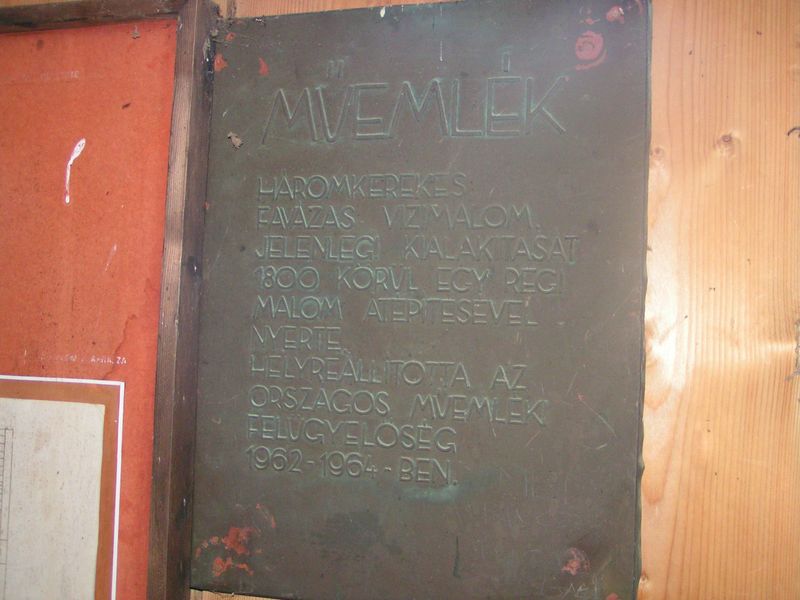 MŰEMLÉK
HÁROMKEREKES
FAVÁZAS VÍZIMALOM.
JELENLEGI KIALAKÍTÁSÁT
1800 KÖRÜL EGY RÉGI
MALOM ÁTÉPÍTÉSÉVEL
NYERTE.
HELYREÁLLÍTOTTA AZ
ORSZÁGOS MŰEMLÉK
FELÜGYELŐSÉG
1962-1964-BEN.